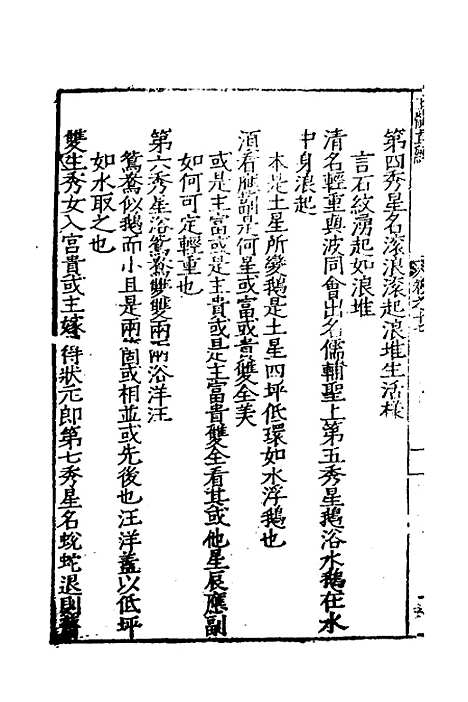 第四秀星名滚浪滚起浪堆生活樣
言石紋湧起如浪堆
清名輕重與波同會出名儒輔聖上第五秀星鵝浴水鵝在水
中身浪起
本是土星所變鵝是土星四坪低環如水浮鵝也
須看應副是何星或富或貴雙全美
或是主富或是主貴或是主富貴雙全看其或他星辰應副
如何可定輕重也
第六秀星浴鴛鴦雙雙兩兩浴洋汪
鴛鴦似鵝而小且是兩箇或相並或先後也汪洋蓋以低坪
如水取之也
雙生秀女入宮貴或主嫁得狀元郎第七秀星名蛻蛇退則